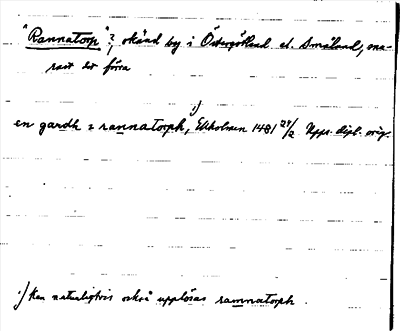 "Rannatorp"?, okänd by i Östergötland el. Småland, sna-
rast det förra
en gardh i rannatorph,¹) Ekholmen 1481 24/2 Upps. dipl. orig.
¹) Kan naturligtvis också upplösas ramnatorph.